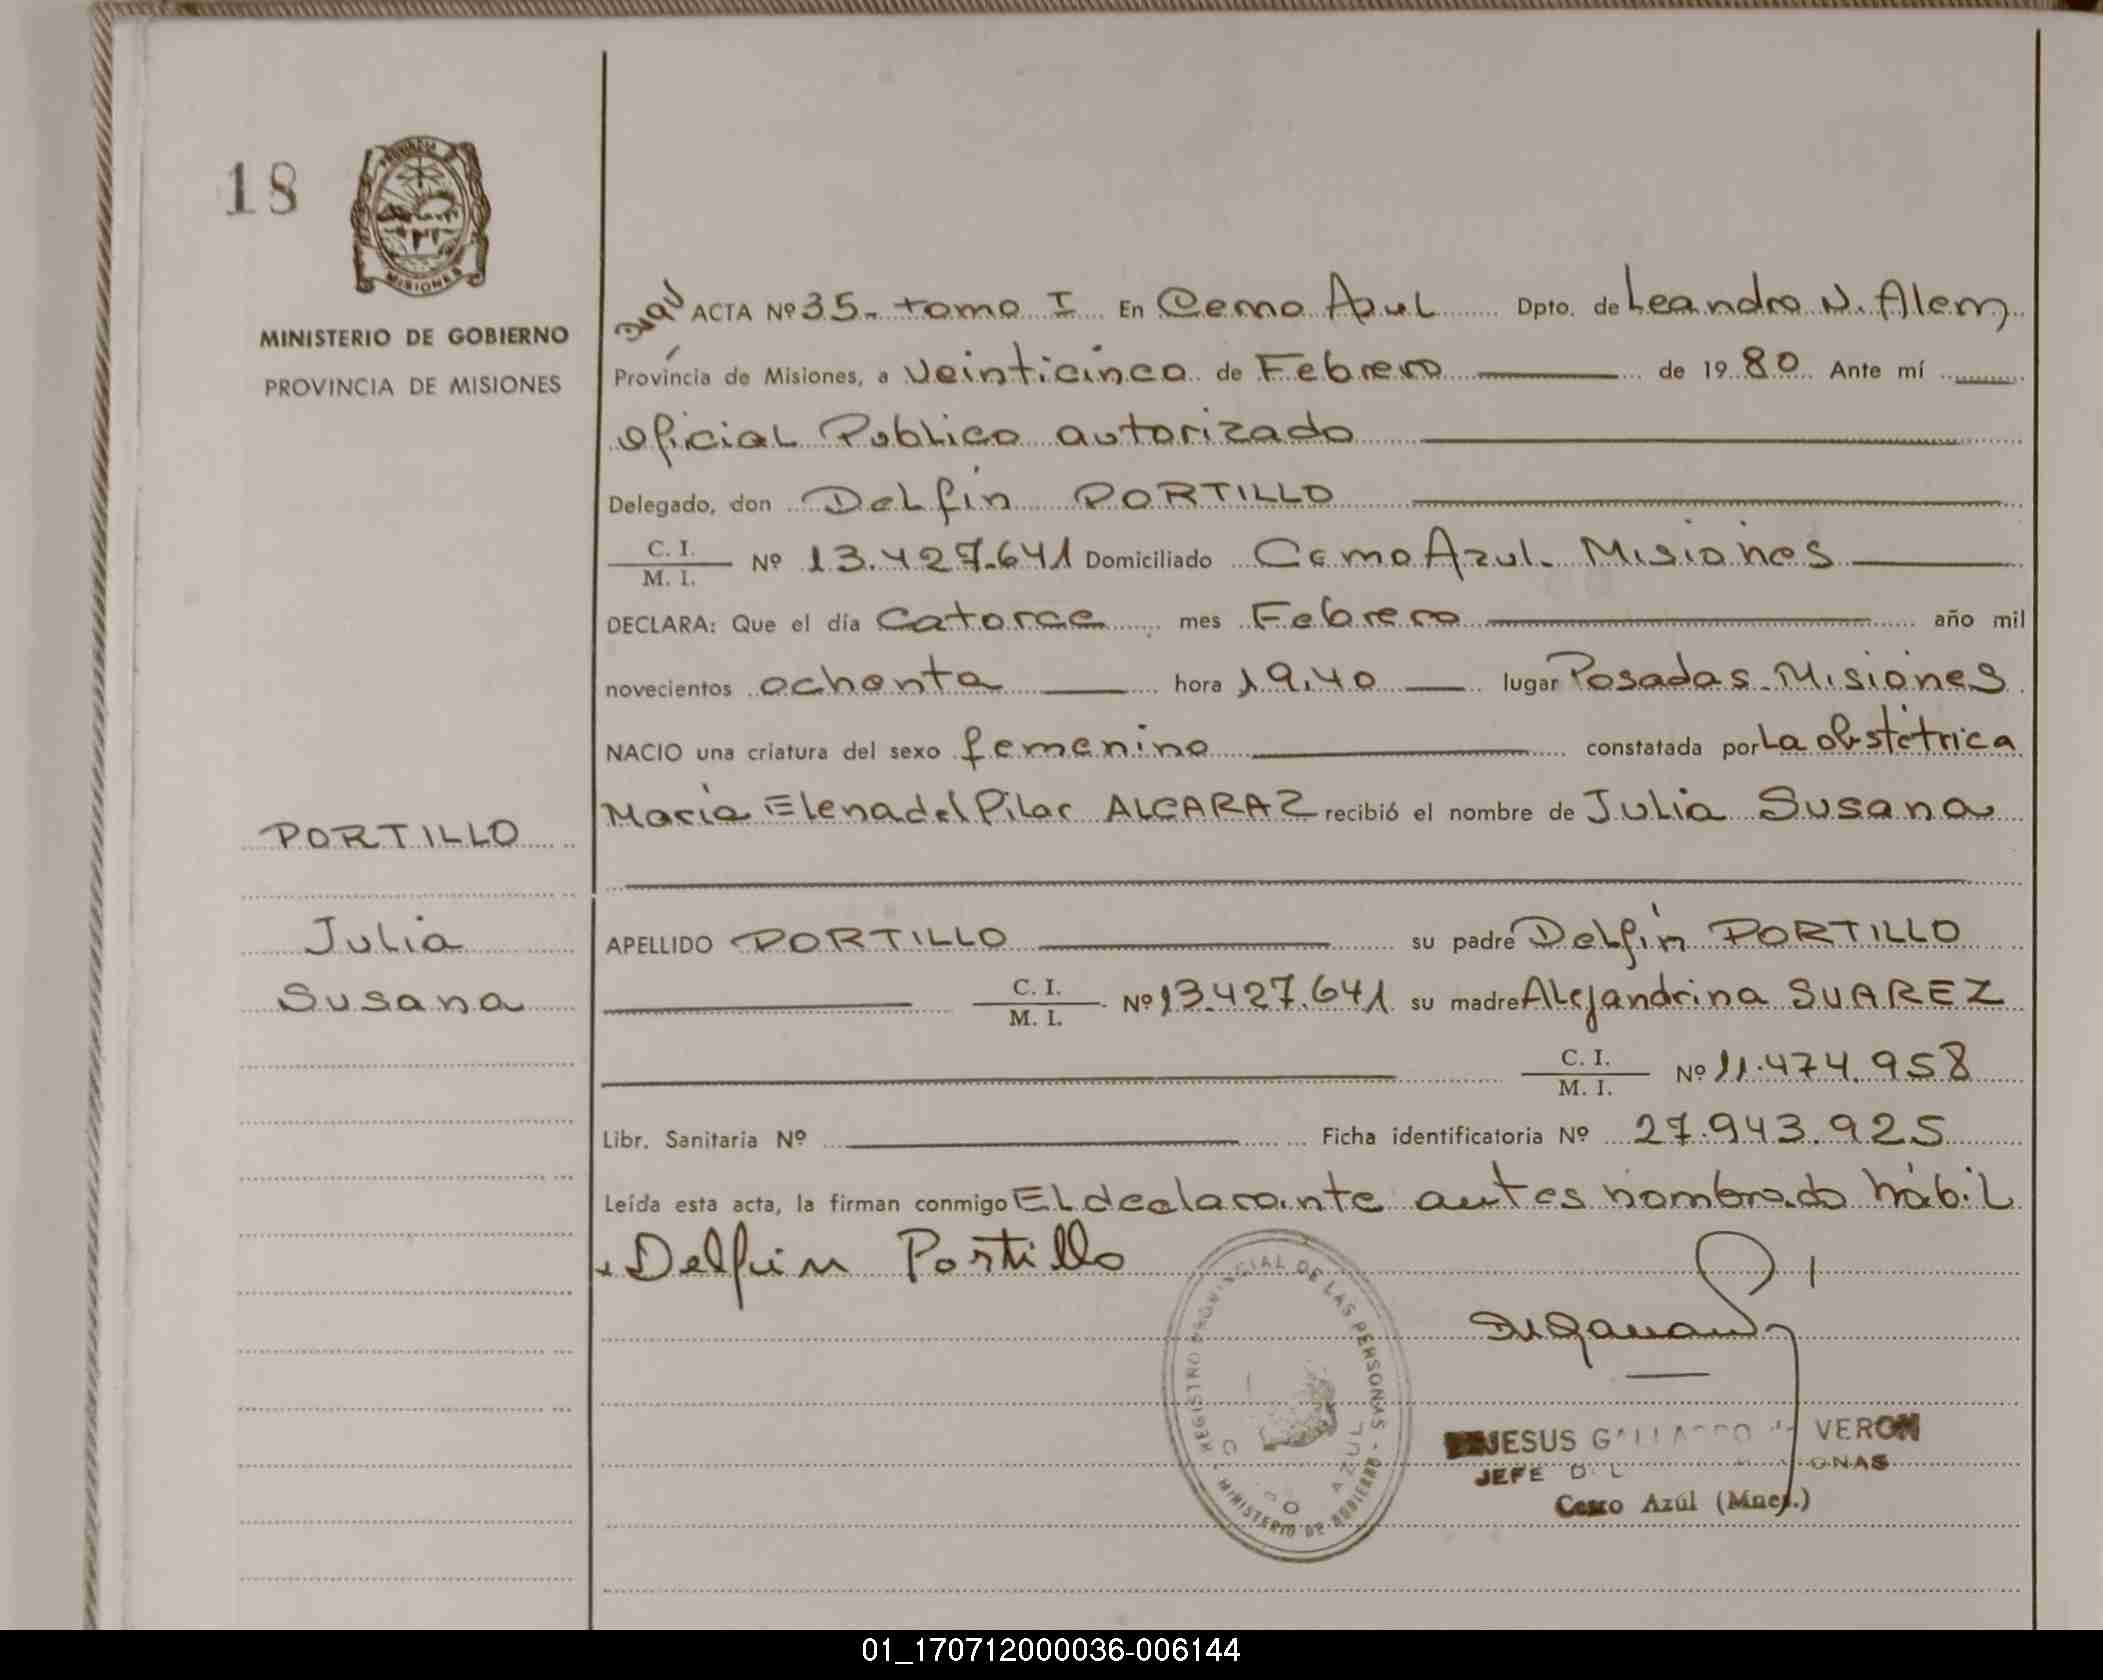 18
PROVINCIA
MISIONES
MINISTERIO DE GOBIERNO
PROVINCIA DE MISIONES
ACTA Nº 35- tomo I En Cerro Azul Dpto. de Leandro N. Alem
Provincia de Misiones, a veinticinco de Febrero de 1980 Ante mí
Oficial Publico autorizado
Delegado, don Delfín PORTILLO
C. I.
M. I. Nº 13.427.641 Domiciliado Cerro Azul- Misiones
DECLARA: Que el día Catorce mes Febrero año mil
novecientos ochenta hora 19,40 lugar Posadas-Misiones
NACIO una criatura del sexo femenino constatada por La obstétrica
María Elena del Pilar ALCARAZ recibió el nombre de Julia Susana
PORTILLO
Julia
Susana
APELLIDO PORTILLO su padre Delfín PORTILLO
C. I.
M. I. Nº 13.427.641 su madre Alejandrina SUAREZ
C. I.
M. I. Nº 11.474.958
Libr. Sanitaria Nº Ficha identificatoria Nº 27.943.925
Leída esta acta, la firman conmigo El declarante antes nombrado hábil
Delfin Portillo
REGISTRO PROVINCIAL DE LAS PERSONAS - MINISTERIO DE GOBIERNO
AZUL
JESUS VERON
JEFE
Cerro Azúl (Mnes.)
01_170712000036-006144